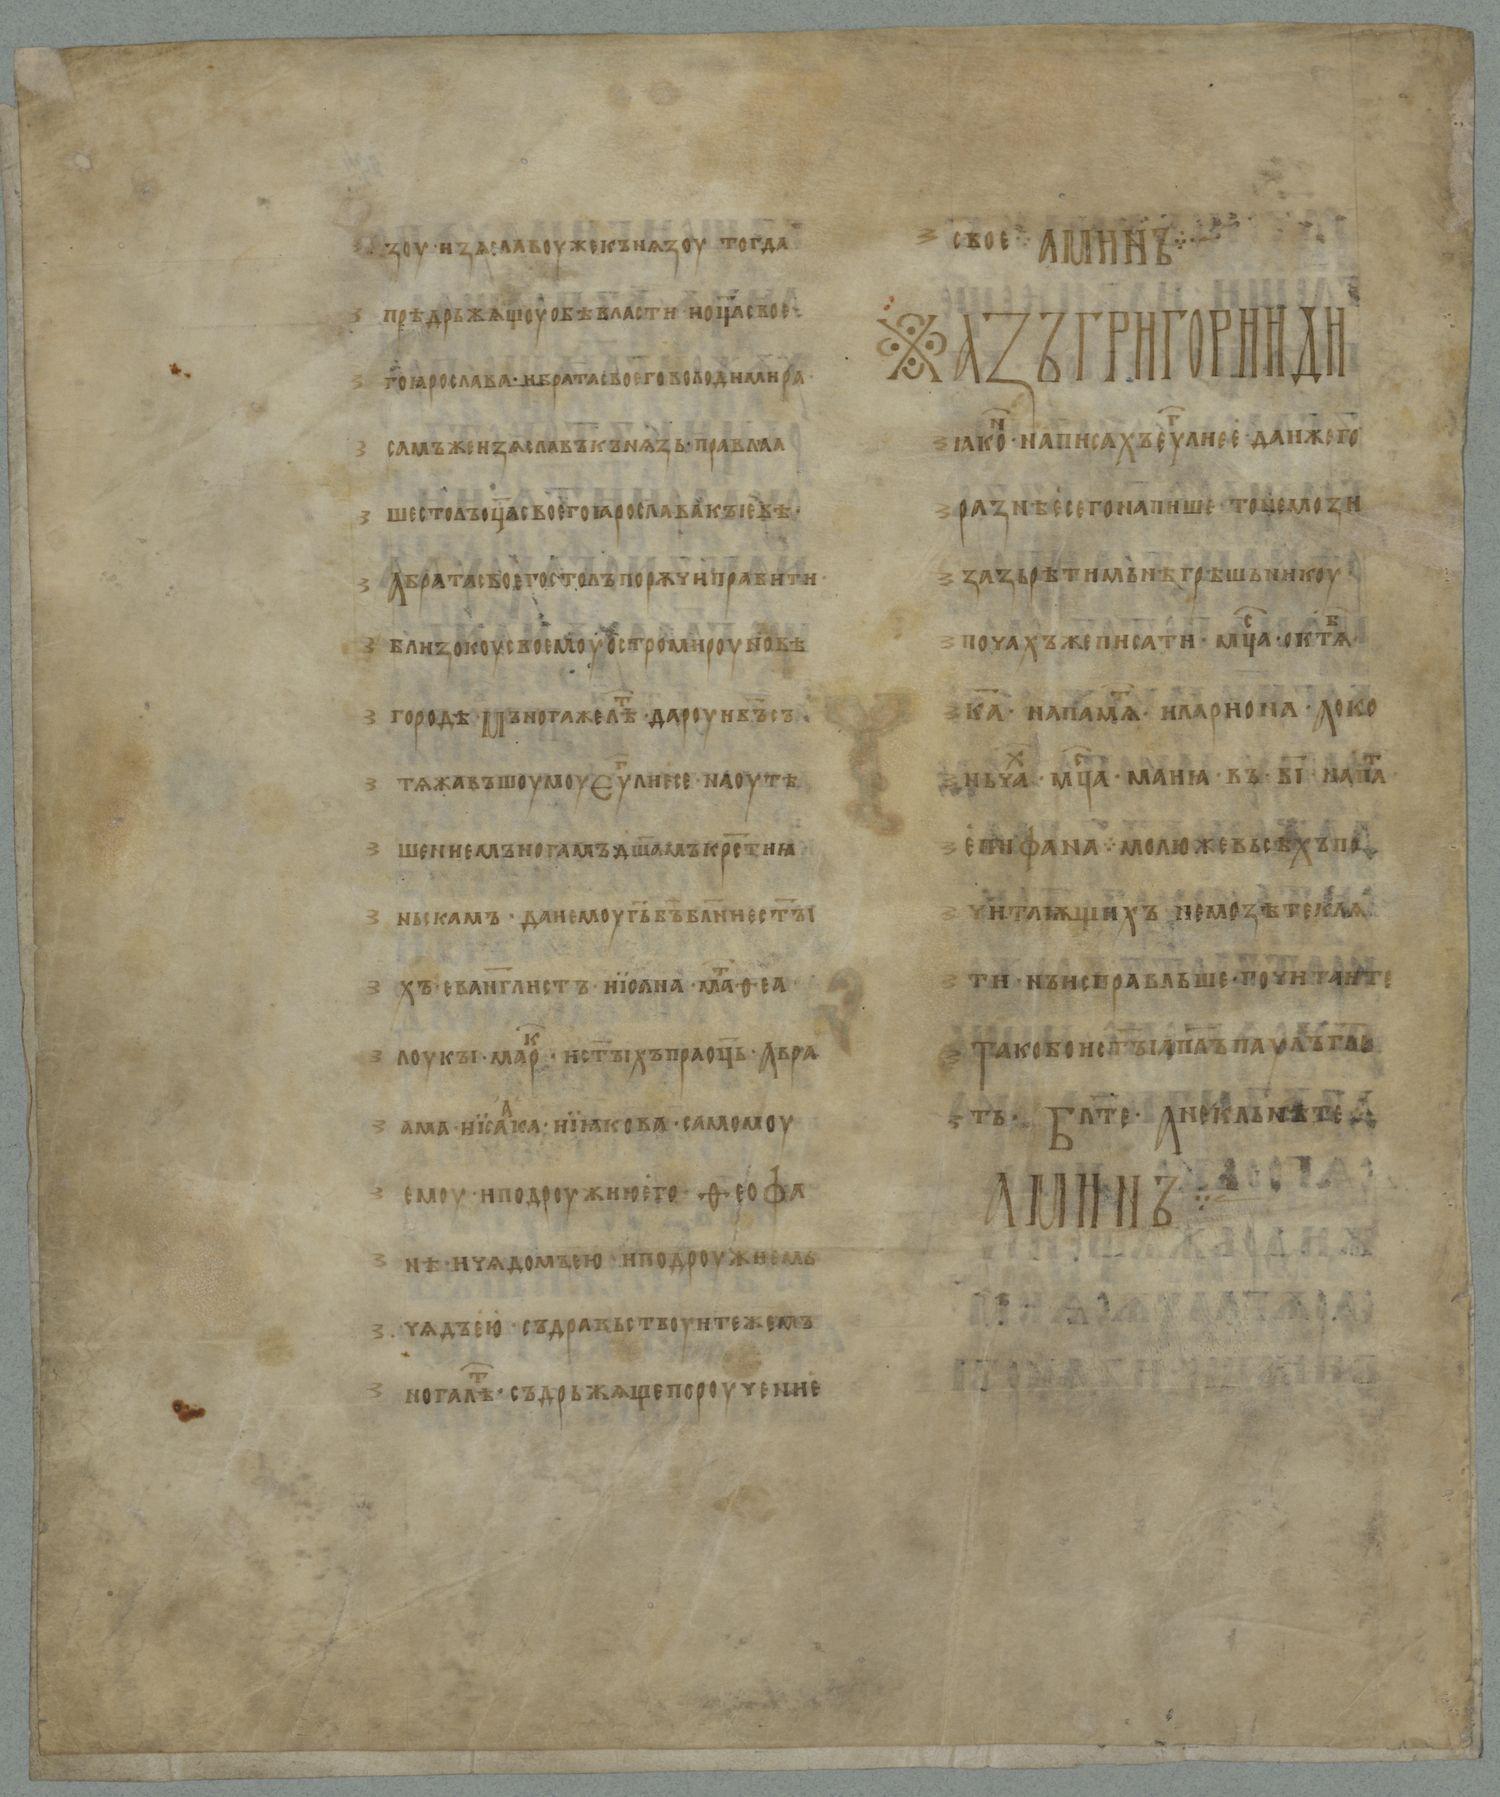 ꙁоу · иꙁѧславоу же кънѧꙁоу тогда
прѣдрьжѧщоу обѣ власти · и оц҃а свое
го ꙗрослава · и брата своего володимира ·
самъ же иꙁѧславъ кънѧꙁь · правлаа
ше столъ оц҃а своего ꙗрослава кꙑевѣ ·
А брата своего столъ порѫчи правити
близокоу своемоу остромироу новѣ
городѣ · Мънога же лѣⷮ · дароуи б҃ъ съ
тѧжавъшоумоу Єуⷢ҇лие се · на оутѣ
шение мъногамъ дш҃амъ крс҃тиꙗ
ньскамъ · дай емоу г҃ь б҃ъ бл҃ние ст҃ꙑ
хъ · еван҃глистъ · и їоана · маⷮѳеа ·
лоукꙑ · марⷦ · и ст҃ꙑхъ праоц҃ь · Авра
ама · и їсаⷶка · и їꙗкова · самомоу
емоу · и подроужию его · ѳеофа
нѣ · и чѧдомъ ею · и подроужиемь
чѧдъ ею · съдравьствоуите же мъ
нога лѣⷮ · съдрьжѧще пороучение
свое ⁘ АМИНЪ ⁘
Аꙁъ григории ди
ꙗкоⷩ · написахъ еуⷢ҇лие е · да иже го
раꙁнѣе сего напише · то не моꙁи
ꙁаꙁьрѣти мьнѣ грѣшьникоу ·
почахъ же писати · мц҃ⷭа · октѧⷡ ·
к҃а · на памѧⷮ · илариона · А око
ньчаⷯ · мц҃ⷭа · маиꙗ · въ · в҃і · на паⷨ
епифана ⁘ молю же вьсѣхъ по
читаѭщихъ не моꙁѣте клѧ
ти · нъ исправльше · почитаите
Тако бо и ст҃ꙑ ап҃лъ паулъ гл҃ѥ
ть · Бл҃те · А не кльнѣте ⁘
АМИНЪ ⁘